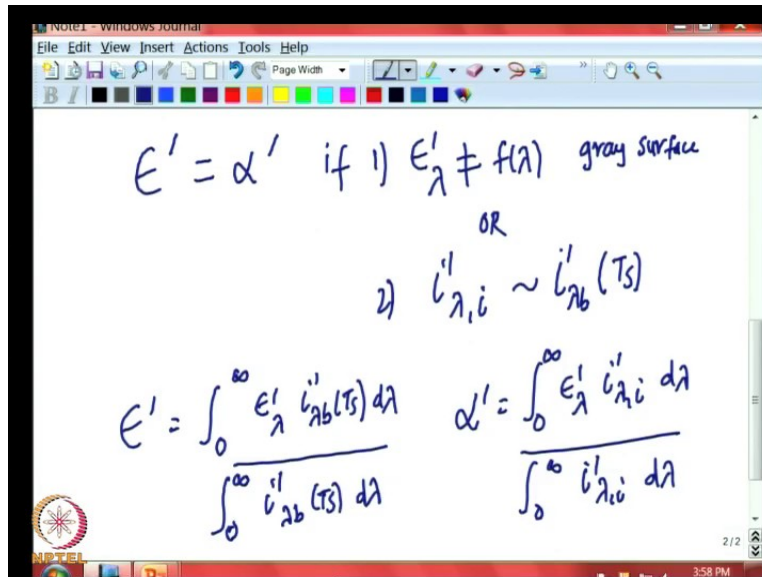 Note1 - Windows Journal
File Edit View Insert Actions Tools Help
Page Width
B I
ϵ' = α' if 1) ϵ'_λ ≠ f(λ) gray surface
OR
2) i'_{λ,i} ~ i'_{λb} (Ts)
ϵ' = ∫_0^∞ ϵ'_λ i'_{λb}(Ts) dλ / ∫_0^∞ i'_{λb} (Ts) dλ α' = ∫_0^∞ ϵ'_λ i'_{λ,i} dλ / ∫_0^∞ i'_{λ,i} dλ
2/2
NPTEL
3:58 PM